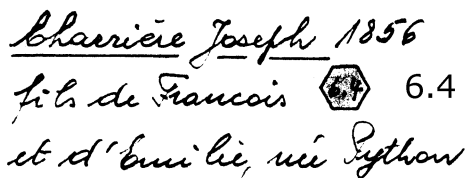 Charrière Joseph 1856
fils de Francois 6.4 6.4
et d'Emilie, née Python